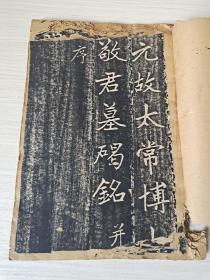 元故太常博士
敬君墓碣銘并
序